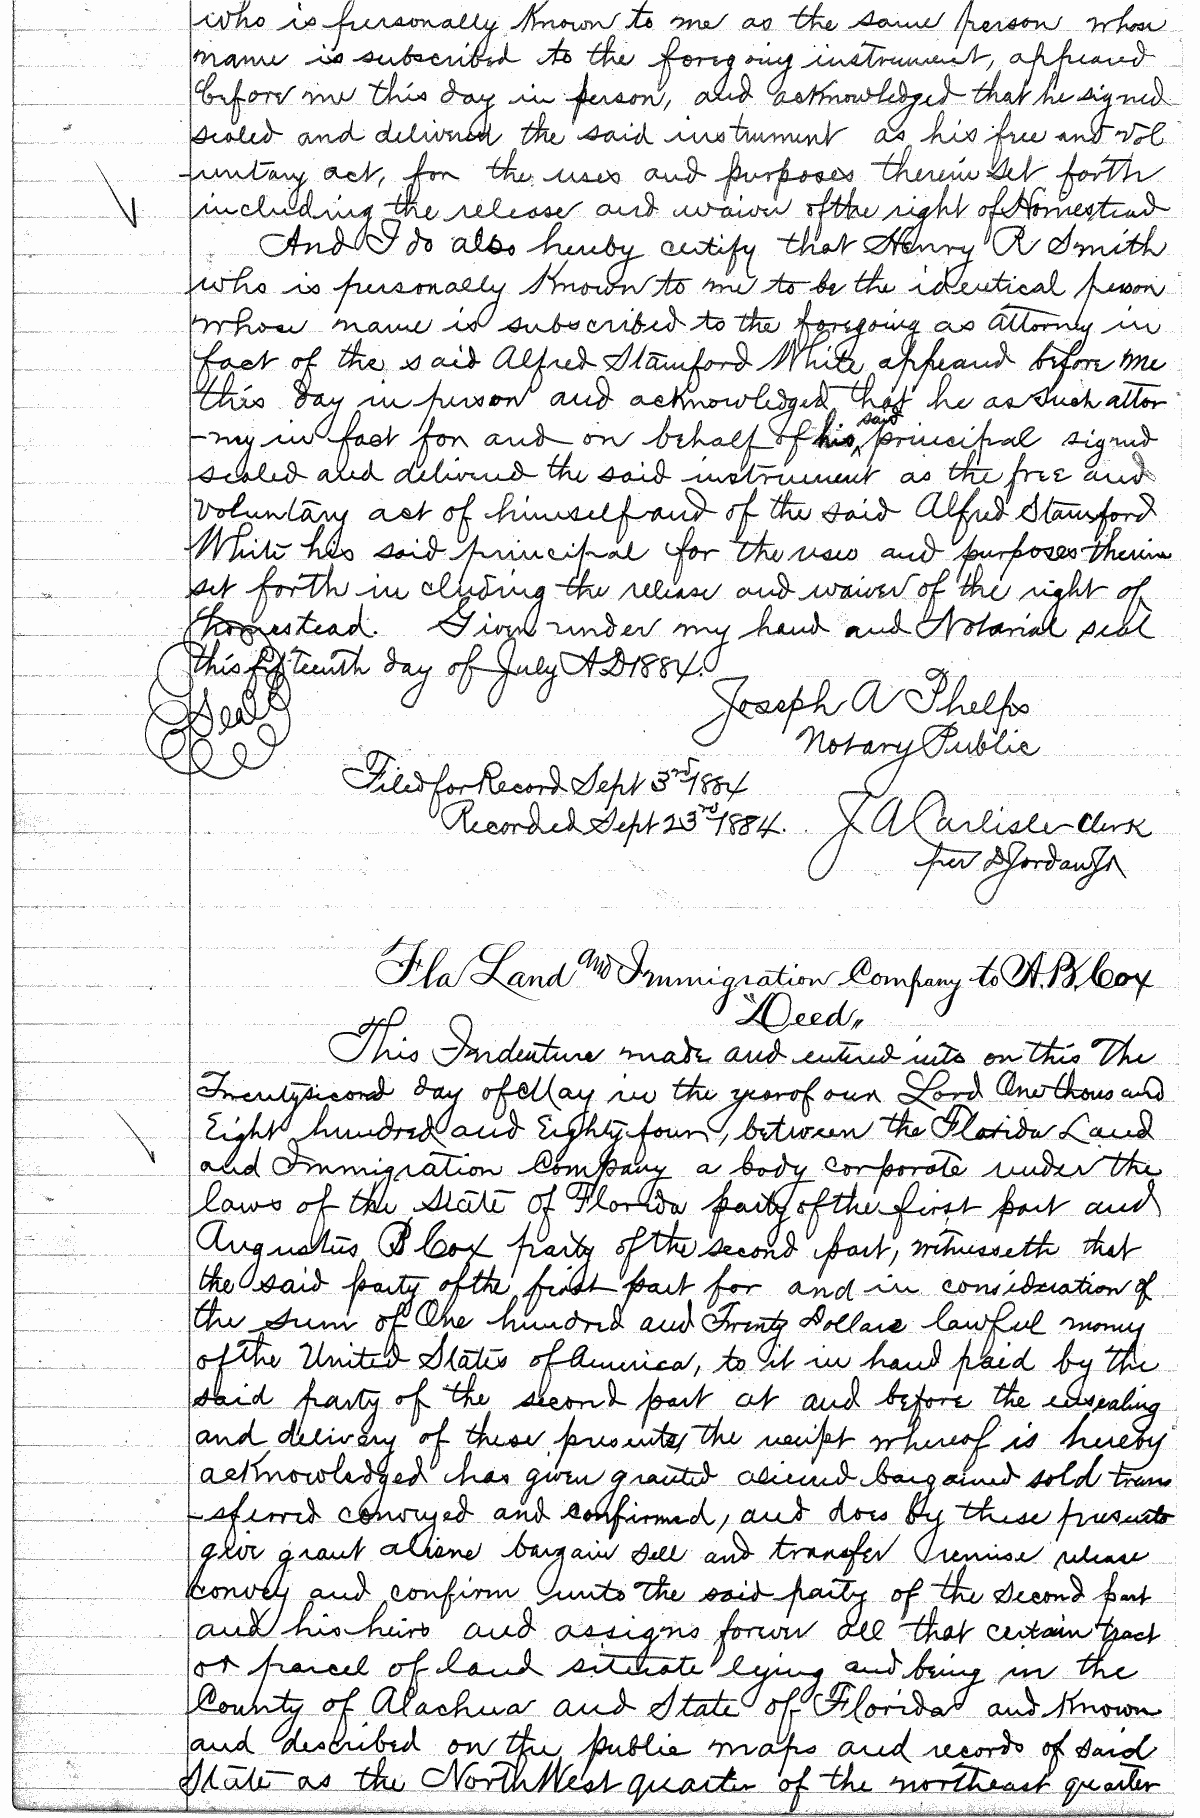 who is personally Known to me as the same person whose
name is subscribed to the foregoing instrument, appeared
before me this day in person, and acknowledged that he signed
sealed and delivered the said instrument as his free and vol
-untary act, for the uses and purposes therein set forth
including the release and waiver of the right of Homestead
And I do also hereby certify that Henry R Smith
who is personally Known to me to be the identical person
whose name is subscribed to the foregoing as attorney in
fact of the said Alfred Stamford White appeared before me
this day in person and acknowledged that he as such attor
-ney in fact for and on behalf of his said principal signed
sealed and delivered the said instrument as the free and
voluntary act of himself and of the said Alfred Stamford
White his said principal for the uses and purposes therein
set forth in cluding the release and waiver of the right of
homestead. Given under my hand and Notarial seal
this fifteenth day of July AD 1884.
Seal
Joseph A Phelps
Notary Public
Filed for Record Sept 3rd 1884
Recorded Sept 23rd 1884. J A Carlisle Clerk
per D Jordan Jr
Fla Land and Immigration Company to A. B. Cox
"Deed"
This Indenture made and entered into on this The
Twentysecond day of May in the year of our Lord One thousand
Eight hundred and Eighty four, between the Florida Land
and Immigration Company a body corporate under the
laws of the State of Florida party of the first part and
Augustus B Cox party of the second part, witnesseth that
the said party of the first part for and in consideration of
the sum of One hundred and Twenty Dollars lawful money
of the United States of America, to it in hand paid by the
said party of the second part at and before the ensealing
and delivery of these presents the receipt whereof is hereby
acknowledged has given granted aliened bargained sold tran
-sferred conveyed and confirmed, and does by these presents
give grant aliene bargain sell and transfer remise release
convey and confirm unto the said party of the second part
and his heirs and assigns forever all that certain tract
or parcel of land situate lying and being in the
County of Alachua and State of Florida and Known
and described on the public maps and records of said
State as the North West quarter of the northeast quarter